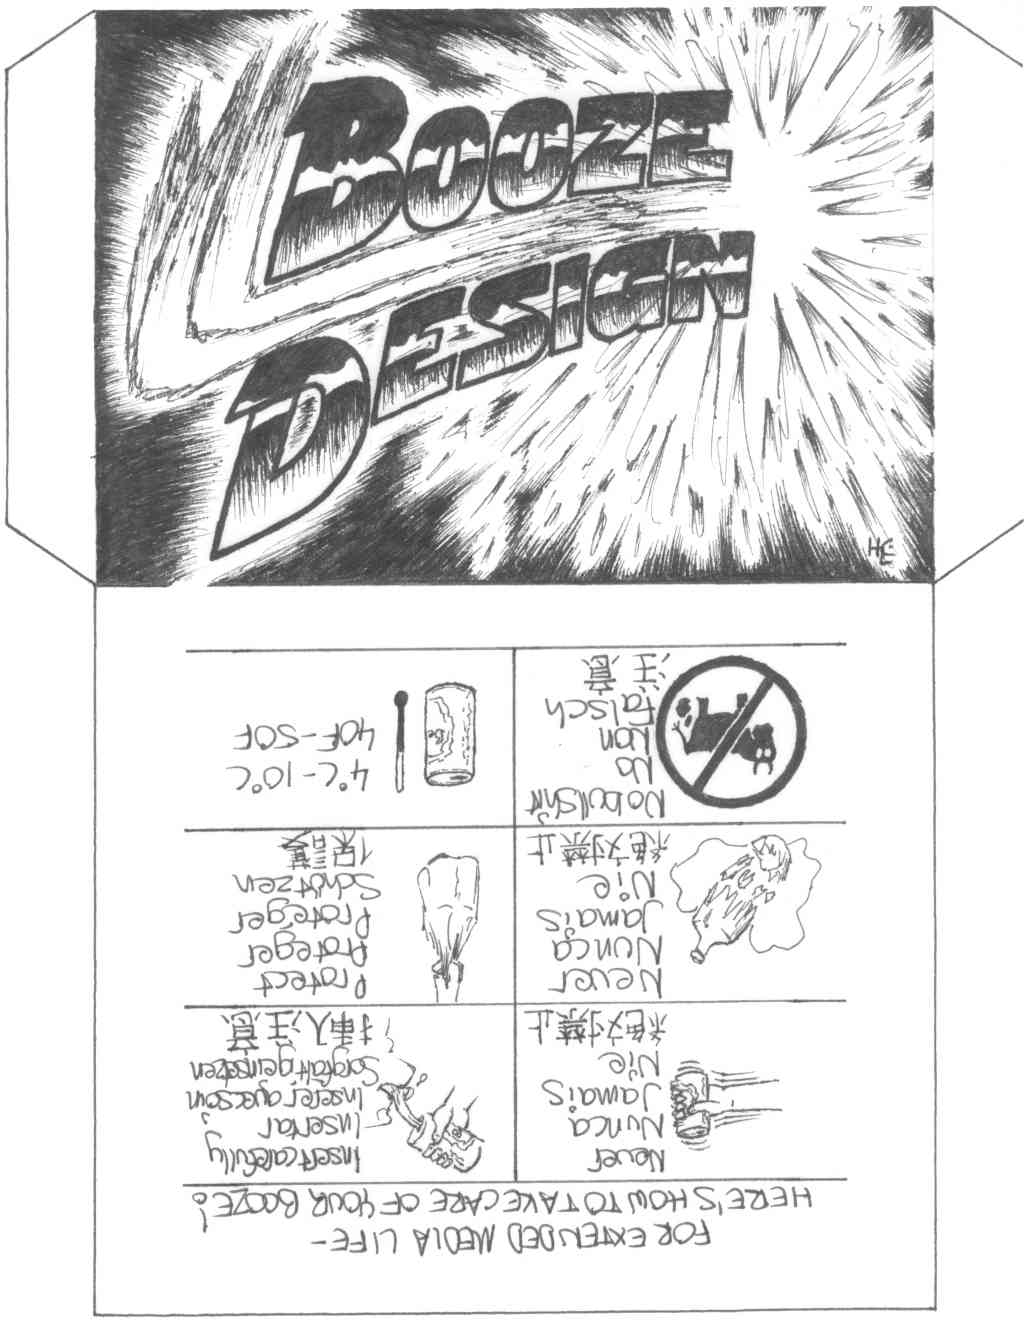 BOOZE
DESIGN
HE
FOR EXTENDED MEDIA LIFE-
HERE'S HOW TO TAKE CARE OF YOUR BOOZE!
Never
Nunca
Jamais
Nie
絶対禁止
Insert carefully
Insertar
Inserer avec soin
Sorgfältig einsetzen
挿入注意
Never
Nunca
Jamais
Nie
絶対禁止
Protect
Proteger
Proteger
Schützen
保護
No bullshit
No
Non
Falsch
注意
4°C-10°C
40F-50F